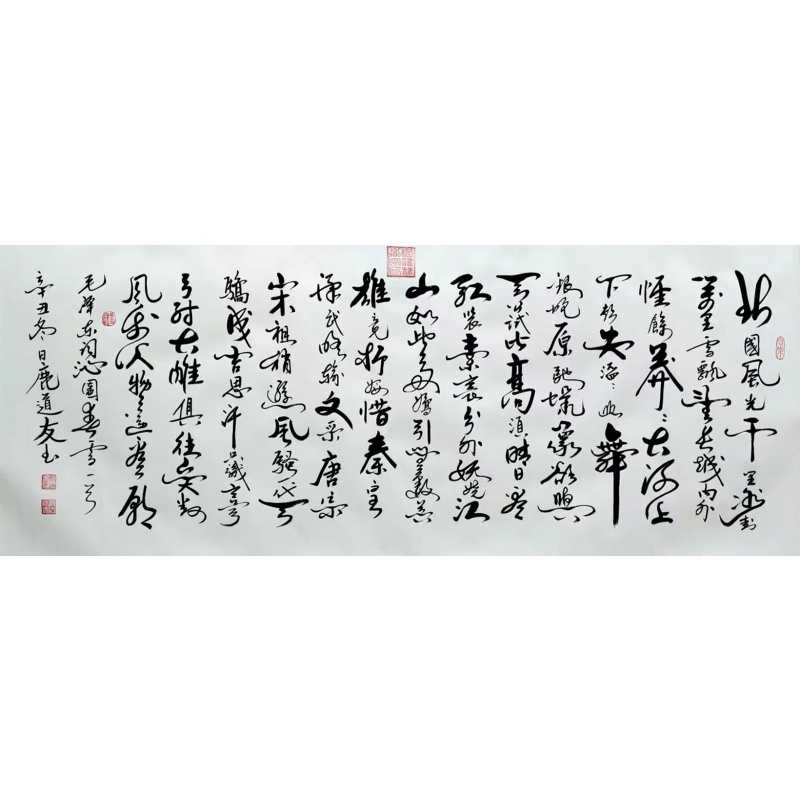 北國風光千里冰封
萬里雪飄望長城内外
惟餘莽〻大河上
下頓失滔〻山舞
銀蛇原馳蠟象欲與
天公試比高須晴日看
紅裝素裹分外妖嬈江
山如此多嬌引無數英
雄競折腰惜秦皇
漢武略輸文采唐宗
宋祖稍遜風騷一代天
驕成吉思汗只識彎
弓射大雕俱往矣數
風流人物還看今朝
毛澤東詞沁園春雪一首
辛丑冬日鹿道友書